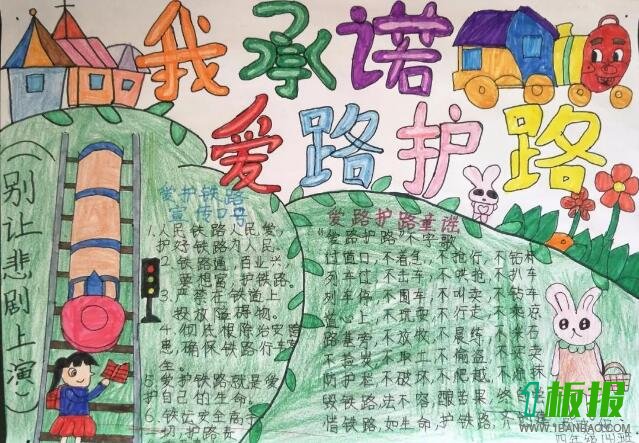 我承诺
爱路护路
(别让悲剧上演)
爱护铁路
宣传口号
1.人民铁路人民爱,
护好铁路为人民。
2.铁路通,百业兴,
要想富,护铁路。
3.严禁在铁道上
投放障碍物。
4.彻底根除治安隐
患,确保铁路行车安
全。
5.爱护铁路就是爱
护自己的生命。
6.铁运安全高于
一切,护路
爱路护路童谣
"爱路护路"不忘歌
过道口,不着急,不抢行,不钻
列车过,不击打,不哄抢,不扒车
列车停,不围车,不叫卖,不钻
道心上,不坑玩,不走
路基旁,不放牧,不晨练,不
不捡炭,不取土,不偷盗,不
防护栏,不破坏,不爬越,不
毁铁路,法不容,
惜铁路,如生命,护铁路,
1板报
WWW.1BANBAO.COM